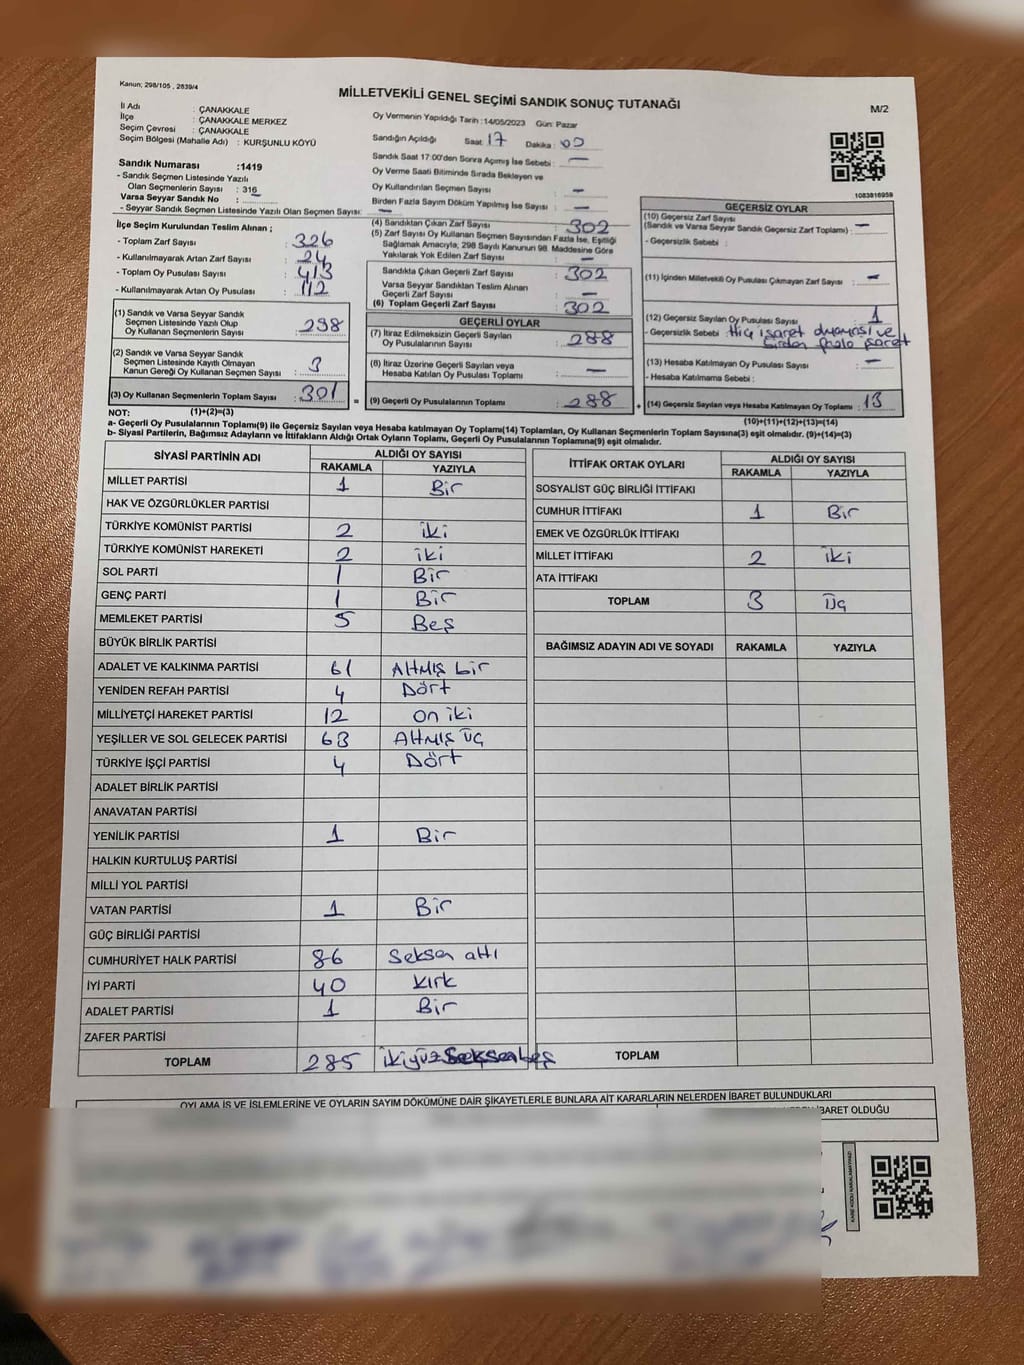 Kanun; 298/105 , 2839/4
MİLLETVEKİLİ GENEL SEÇİMİ SANDIK SONUÇ TUTANAĞI
M/2
İl Adı : ÇANAKKALE
İlçe : ÇANAKKALE MERKEZ
Seçim Çevresi : ÇANAKKALE
Seçim Bölgesi (Mahalle Adı) : KURŞUNLU KÖYÜ
Sandık Numarası :1419
- Sandık Seçmen Listesinde Yazılı
Olan Seçmenlerin Sayısı : 316
Varsa Seyyar Sandık No :
- Seyyar Sandık Seçmen Listesinde Yazılı Olan Seçmen Sayısı: —
Oy Vermenin Yapıldığı Tarih :14/05/2023 Gün: Pazar
Sandığın Açıldığı Saat: 17 Dakika : 00
Sandık Saat 17:00'den Sonra Açılmış İse Sebebi : —
Oy Verme Saati Bitiminde Sırada Bekleyen ve
Oy Kullandırılan Seçmen Sayısı : —
Birden Fazla Sayım Döküm Yapılmış İse Sayısı : —
1083816959
İlçe Seçim Kurulundan Teslim Alınan ;
- Toplam Zarf Sayısı : 326
- Kullanılmayarak Artan Zarf Sayısı : 24
- Toplam Oy Pusulası Sayısı : 413
- Kullanılmayarak Artan Oy Pusulası : 112
(1) Sandık ve Varsa Seyyar Sandık
Seçmen Listesinde Yazılı Olup
Oy Kullanan Seçmenlerin Sayısı : 298
(2) Sandık ve Varsa Seyyar Sandık
Seçmen Listesinde Kayıtlı Olmayan
Kanun Gereği Oy Kullanan Seçmen Sayısı : 3
(3) Oy Kullanan Seçmenlerin Toplam Sayısı : 301
(4) Sandıktan Çıkan Zarf Sayısı : 302
(5) Zarf Sayısı Oy Kullanan Seçmen Sayısından Fazla İse, Eşitliği
Sağlamak Amacıyla, 298 Sayılı Kanunun 98. Maddesine Göre
Yakılarak Yok Edilen Zarf Sayısı : —
Sandıkta Çıkan Geçerli Zarf Sayısı : 302
Varsa Seyyar Sandıktan Teslim Alınan
Geçerli Zarf Sayısı : —
(6) Toplam Geçerli Zarf Sayısı : 302
GEÇERLİ OYLAR
(7) İtiraz Edilmeksizin Geçerli Sayılan
Oy Pusulalarının Sayısı : 288
(8) İtiraz Üzerine Geçerli Sayılan veya
Hesaba Katılan Oy Pusulası Toplamı : —
= (9) Geçerli Oy Pusulalarının Toplamı : 288 +
GEÇERSİZ OYLAR
(10) Geçersiz Zarf Sayısı
(Sandık ve Varsa Seyyar Sandık Geçersiz Zarf Toplamı) : —
- Geçersizlik Sebebi :
(11) İçinden Milletvekili Oy Pusulası Çıkmayan Zarf Sayısı : —
(12) Geçersiz Sayılan Oy Pusulası Sayısı : 1
- Geçersizlik Sebebi : Hiç işaret ve
Birden fazla
(13) Hesaba Katılmayan Oy Pusulası Sayısı : —
- Hesaba Katılmama Sebebi :
(14) Geçersiz Sayılan veya Hesaba Katılmayan Oy Toplamı : 13
NOT: (1)+(2)=(3) (10)+(11)+(12)+(13)=(14)
a- Geçerli Oy Pusulalarının Toplamı(9) ile Geçersiz Sayılan veya Hesaba katılmayan Oy Toplamı(14) Toplamları, Oy Kullanan Seçmenlerin Toplam Sayısına(3) eşit olmalıdır. (9)+(14)=(3)
b- Siyasi Partilerin, Bağımsız Adayların ve İttifakların Aldığı Ortak Oyların Toplamı, Geçerli Oy Pusulalarının Toplamına(9) eşit olmalıdır.
SİYASİ PARTİNİN ADI ALDIĞI OY SAYISI
RAKAMLA YAZIYLA
MİLLET PARTİSİ 1 Bir
HAK VE ÖZGÜRLÜKLER PARTİSİ
TÜRKİYE KOMÜNİST PARTİSİ 2 iki
TÜRKİYE KOMÜNİST HAREKETİ 2 iki
SOL PARTİ 1 Bir
GENÇ PARTİ 1 Bir
MEMLEKET PARTİSİ 5 Beş
BÜYÜK BİRLİK PARTİSİ
ADALET VE KALKINMA PARTİSİ 61 Altmış bir
YENİDEN REFAH PARTİSİ 4 Dört
MİLLİYETÇİ HAREKET PARTİSİ 12 on iki
YEŞİLLER VE SOL GELECEK PARTİSİ 63 Altmış üç
TÜRKİYE İŞÇİ PARTİSİ 4 Dört
ADALET BİRLİK PARTİSİ
ANAVATAN PARTİSİ
YENİLİK PARTİSİ 1 Bir
HALKIN KURTULUŞ PARTİSİ
MİLLİ YOL PARTİSİ
VATAN PARTİSİ 1 Bir
GÜÇ BİRLİĞİ PARTİSİ
CUMHURİYET HALK PARTİSİ 86 Seksen altı
İYİ PARTİ 40 Kırk
ADALET PARTİSİ 1 Bir
ZAFER PARTİSİ
TOPLAM 285 ikiyüzSeksenbeş
İTTİFAK ORTAK OYLARI ALDIĞI OY SAYISI
RAKAMLA YAZIYLA
SOSYALİST GÜÇ BİRLİĞİ İTTİFAKI
CUMHUR İTTİFAKI 1 Bir
EMEK VE ÖZGÜRLÜK İTTİFAKI
MİLLET İTTİFAKI 2 iki
ATA İTTİFAKI
TOPLAM 3 üç
BAĞIMSIZ ADAYIN ADI VE SOYADI RAKAMLA YAZIYLA
TOPLAM
OYLAMA İŞ VE İŞLEMLERİNE VE OYLARIN SAYIM DÖKÜMÜNE DAİR ŞİKAYETLERLE BUNLARA AİT KARARLARIN NELERDEN İBARET BULUNDUKLARI
İBARET OLDUĞU
KARE KODU KARALAMAYINIZ!